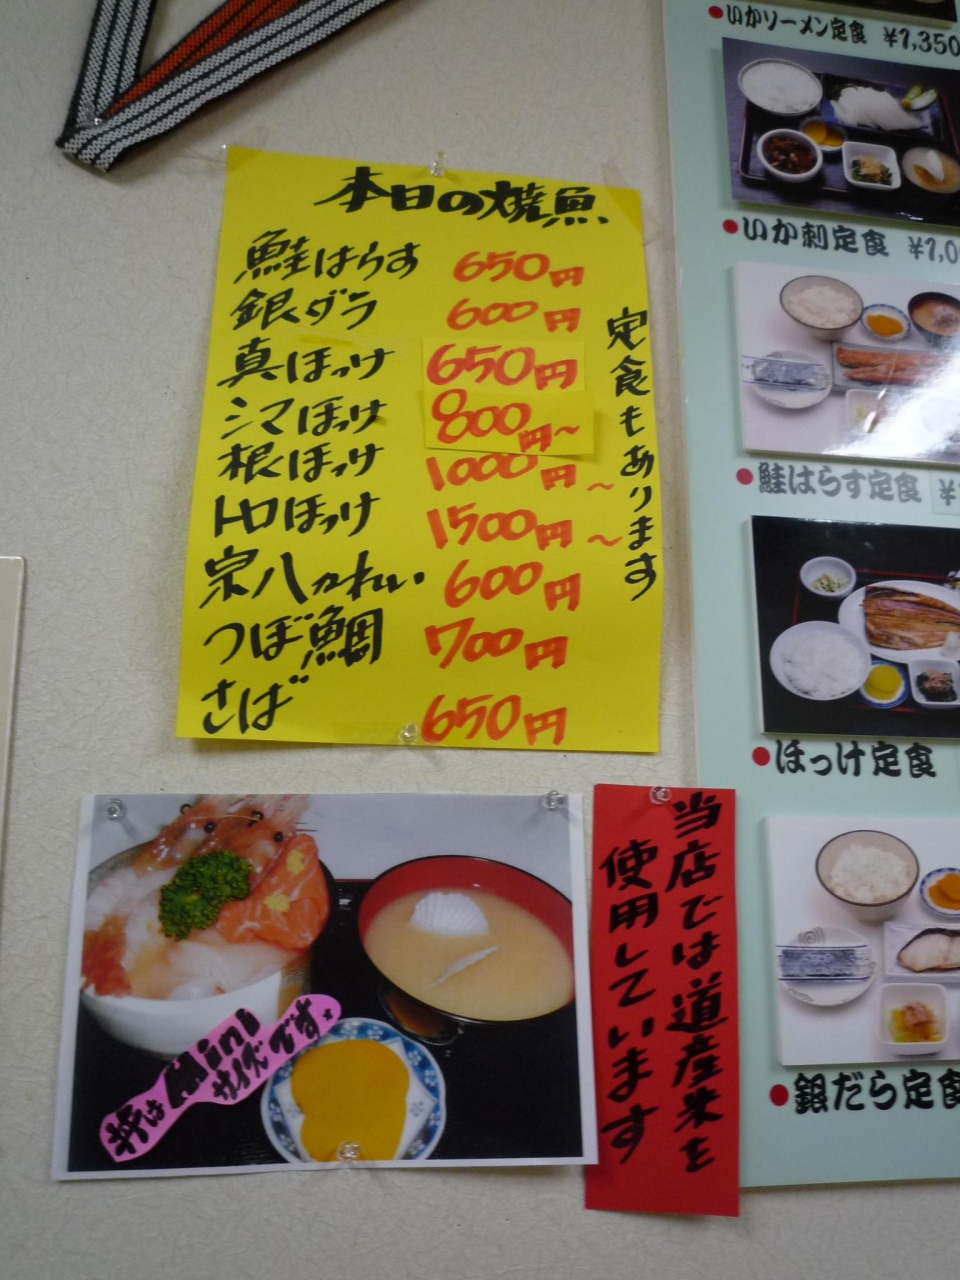 本日の焼魚
鮭はらす 650円
銀ダラ 600円
真ほっけ 650円
シマほっけ 800円~
根ほっけ 1000円~
トロほっけ 1500円~
宗八かれい 600円
つぼ鯛 700円
さば 650円
定食もあります
丼は Mini サイズです
当店では道産米を
使用しています
いかソーメン定食 ¥1,350
いか刺定食 ¥1,0
鮭はらす定食 ¥
ほっけ定食
銀だら定食